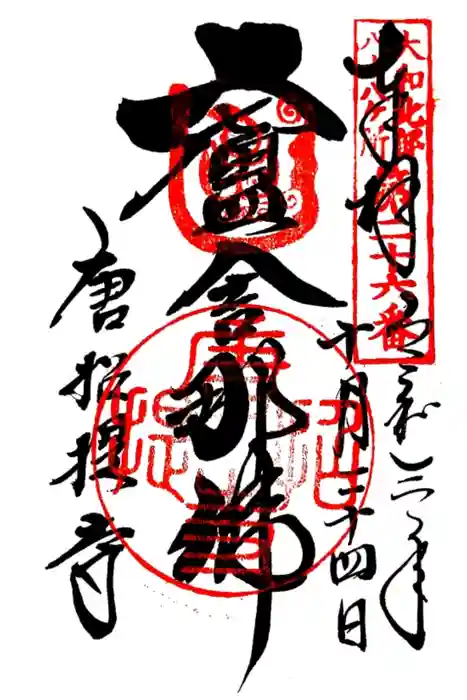 大和北部
八十八ヶ所第二十六番
奉拝
令和三年
十月二十四日
盧舎那佛
唐招提寺